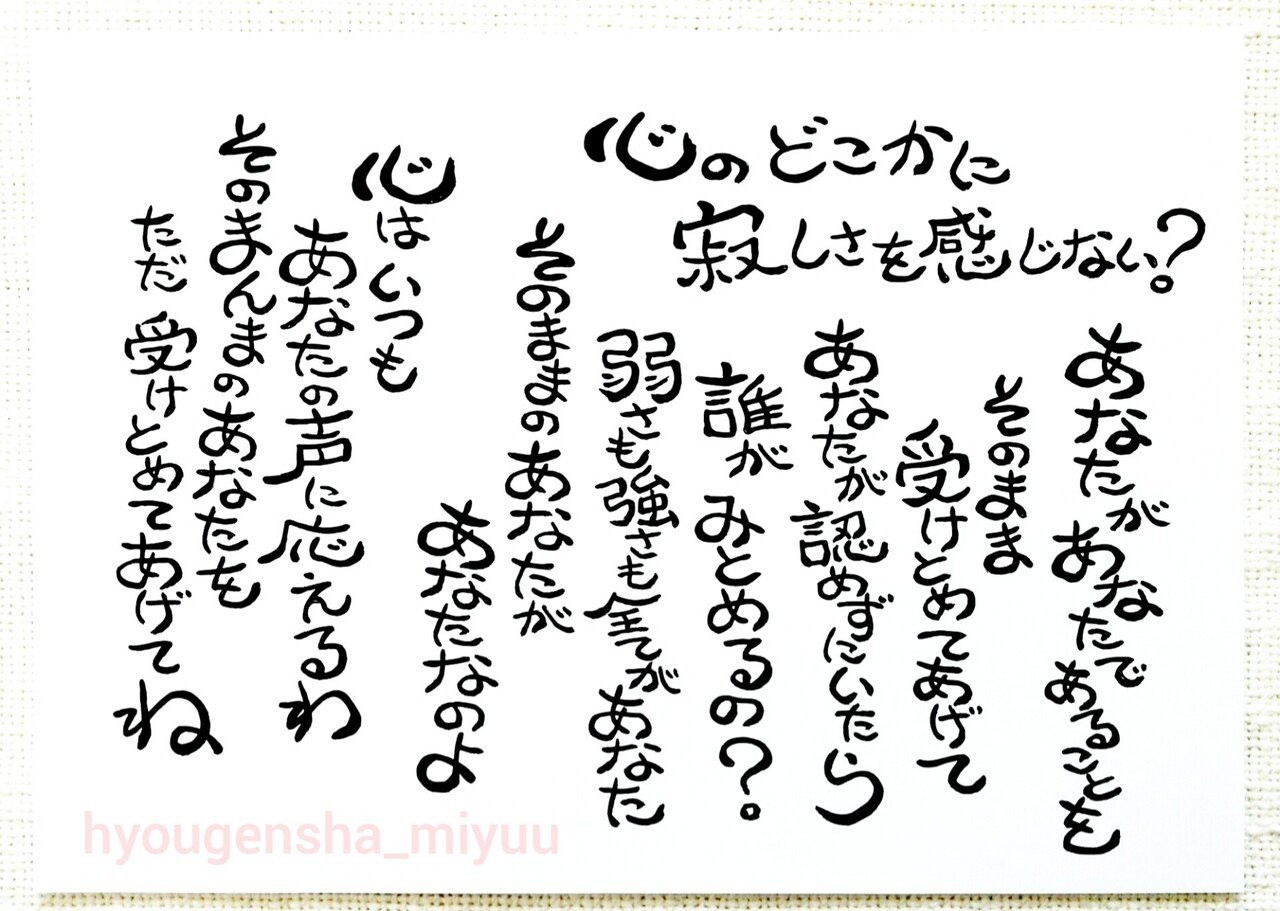 心のどこかに
寂しさを感じない?
あなたがあなたであることを
そのまま
受けとめてあげて
あなたが認めずにいたら
誰がみとめるの?。
弱さも強さも全てがあなた
そのままのあなたが
あなたなのよ
心はいつも
あなたの声に応えるわ
そのまんまのあなたを
ただ 受けとめてあげてね
hyougensha_miyuu